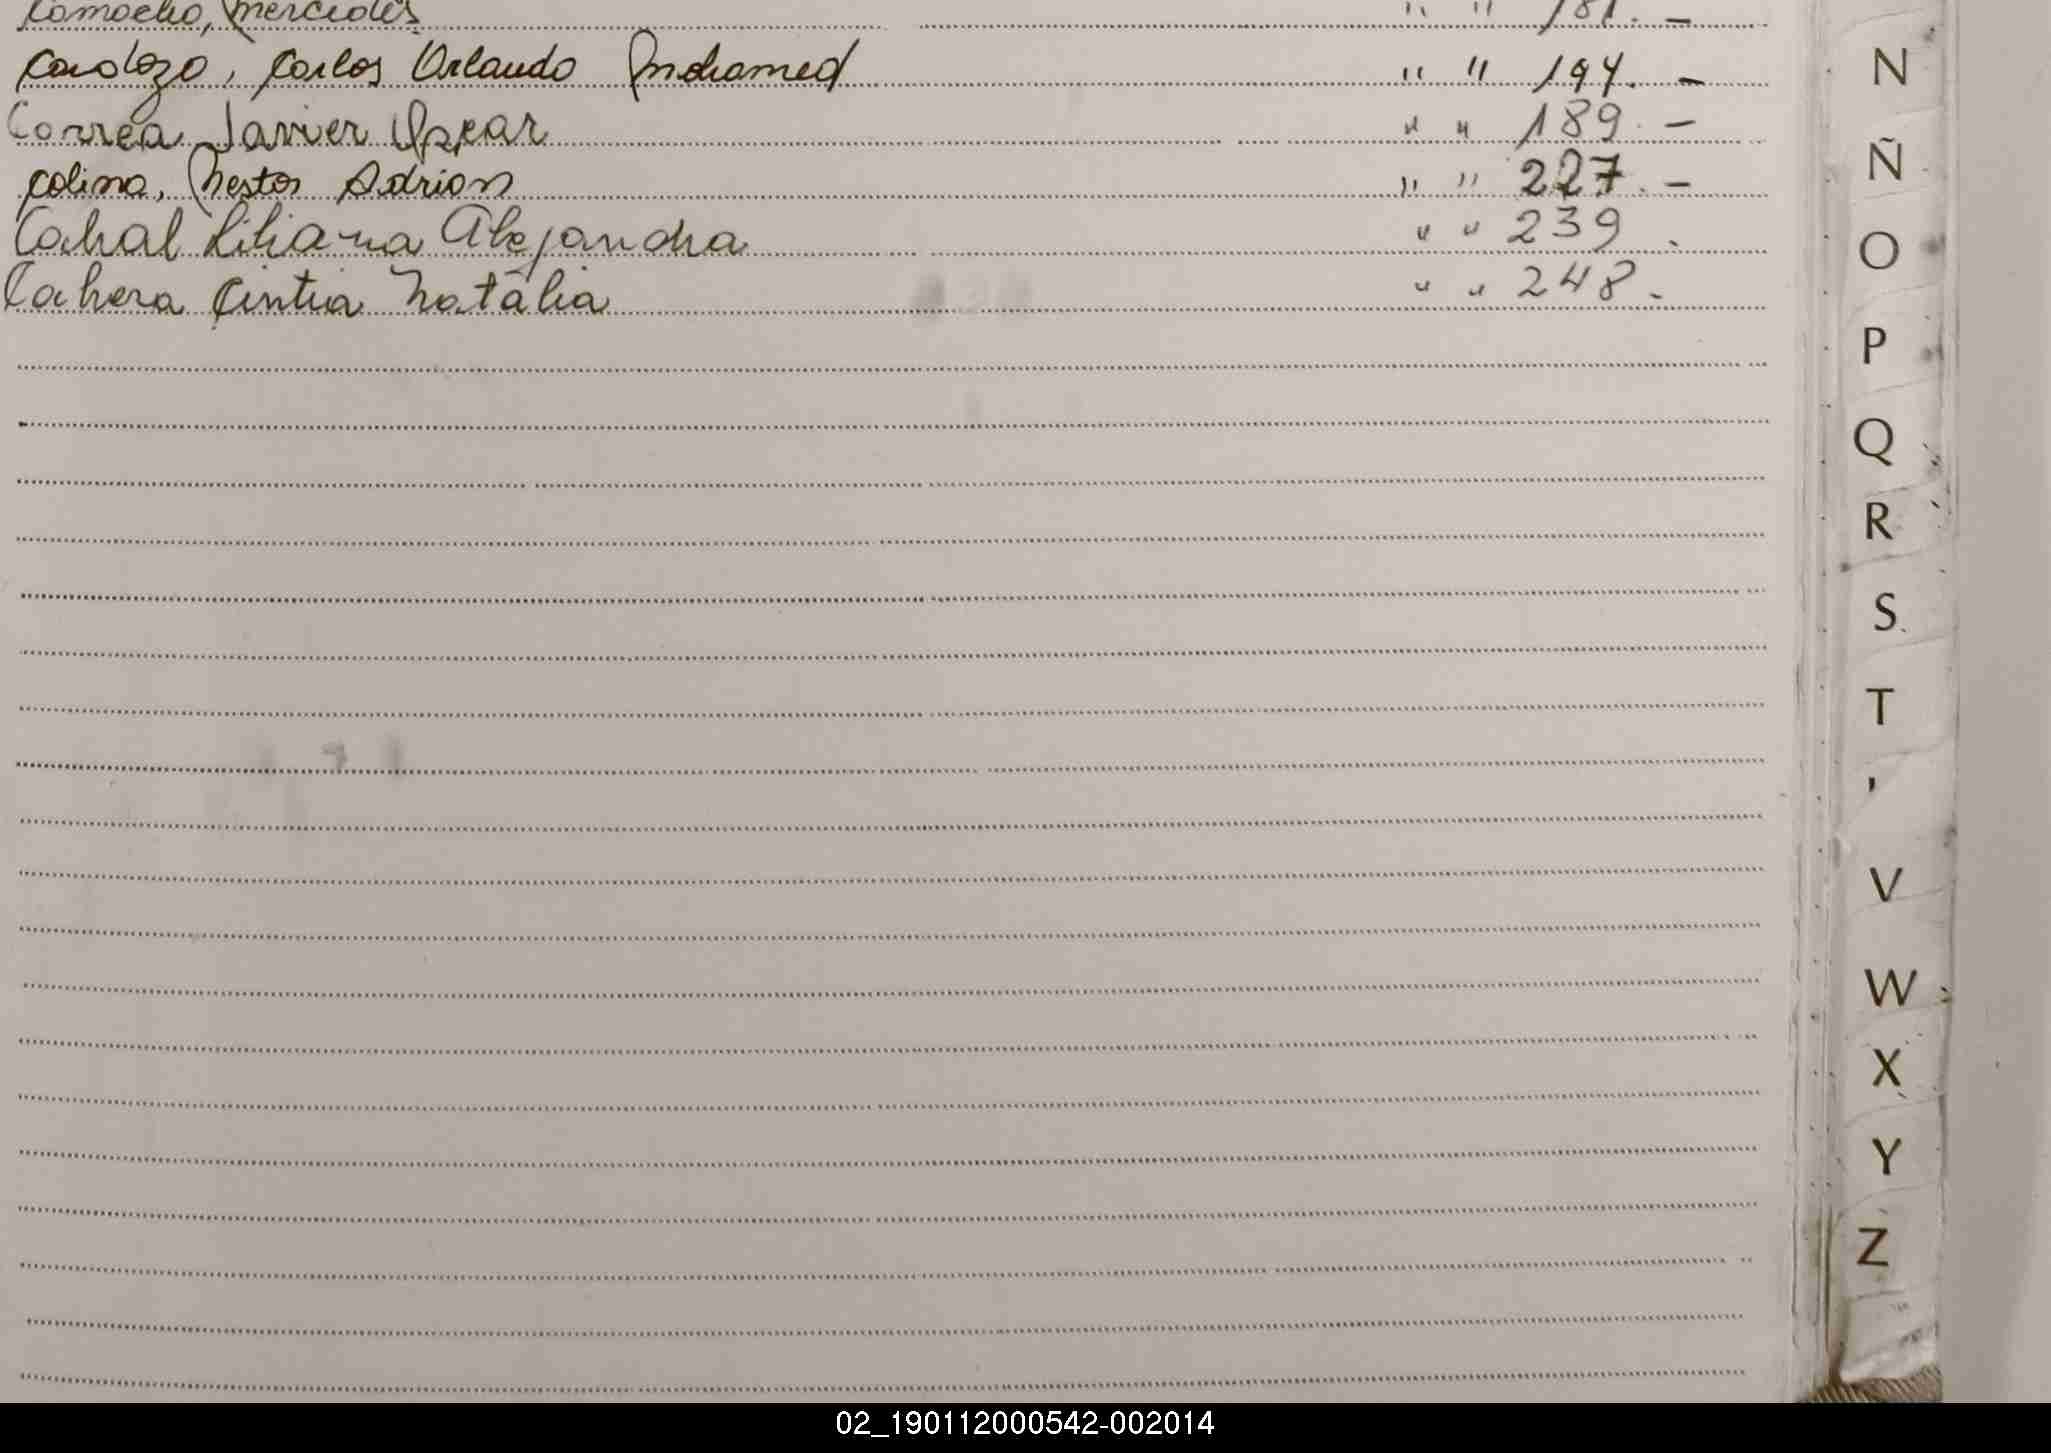 Camacho, Mercedes " " 181. -
Cardozo, Carlos Orlando Mohamed " " 194. -
Correa Javier Oscar " " 189. -
Colina, Nestor Adrian " " 227. -
Cabral Liliana Alejandra " " 239 .
Cabrera Cintia Natalia " " 248.
N
Ñ
O
P
Q
R
S
T
V
W
X
Y
Z
02_190112000542-002014